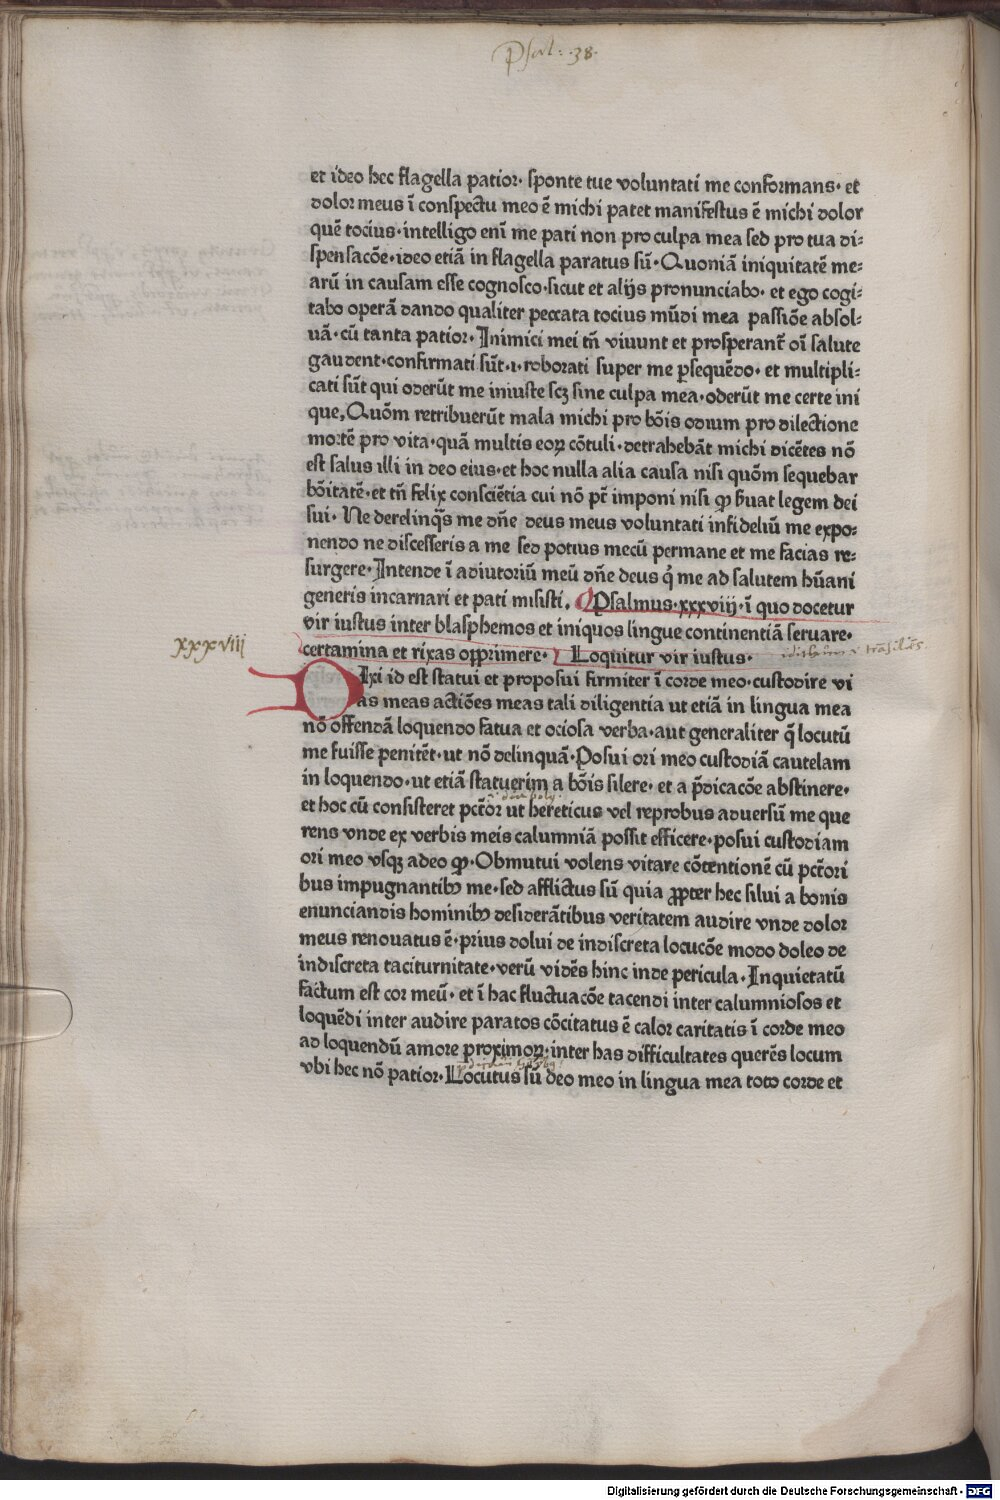 Psal: .38.
et ideo hec flagella patior· sponte tue voluntati me conformans· et
dolor meus ī conspectu meo ē michi patet manifestus ē michi dolor
quē tocius·intelligo enī me pati non pro culpa mea sed pro tua di⸗
spensacōe·ideo etiā in flagella paratus sū· Quoniā iniquitatē me⸗
arū in causam esse cognosco·sicut et alijs pronunciabo· et ego cogi⸗
tabo operā dando qualiter peccata tocius mūdi mea passiōe absol⸗
uā·cū tanta patior· Inimici mei tn̄ viuunt et prosperant̄ oī salute
gaudent·confirmati sūt·ı·roborati super me ꝑsequēdo· et multipli⸗
cati sūt qui oderūt me iniuste scꝫ sine culpa mea·oderūt me certe ini
que, Quōm retribuerūt mala michi pro bōis odium pro dilectione
mortē pro vita·quā multis eoꝝ cōtuli·detrahebāt michi dicētes nō
est salus illi in deo eius·et hoc nulla alia causa nisi quōm sequebar
bōitatē·et tn̄ felix consciētia cui nō pt̄ imponi nisi ꝙ ẜuat legem dei
sui· Ne derelinq̄s me dn̄e deus meus voluntati infideliū me expo⸗
nendo ne discesseris a me sed potius mecū permane et me facias re⸗
surgere·Intende ī adiutoriū meū dn̄e deus q̇ me ad salutem hūani
generis incarnari et pati misisti. Psalmus·xxxviij·ī quo docetur
vir iustus inter blasphemos et iniquos lingue continentiā seruare·
xxxviii
certamina et rixas opprimere· Loquitur vir iustus·
Dixi id est statui et proposui firmiter ī corde meo·custodire vi
as meas actiōes meas tali diligentia ut etiā in lingua mea
nō offendā loquendo fatua et ociosa verba·aut generaliter q̄ locutū
me fuisse penitēt·ut nō delinquā·Posui ori meo custodiā cautelam
in loquendo·ut etiā statuerim a bōis silere· et a p̄dicacōe abstinere·
et hoc cū consisteret pctōr ut hereticus vel reprobus aduersū me que
rens vnde ex verbis meis calumniā possit efficere·posui custodiam
ori meo vsqꝫ adeo ꝙ·Obmutui volens vitare cōtentionē cū pctōri
bus impugnantibꝰ me·sed afflictus sū quia ꝓpter hec silui a bonis
enunciandis hominibꝰ desiderātibus veritatem audire vnde dolor
meus renouatus ē·prius dolui de indiscreta locucōe modo doleo de
indiscreta taciturnitate·verū vidēs hinc inde pericula·Inquietatū
factum est cor meū· et ī hac fluctuacōe tacendi inter calumniosos et
loquēdi inter audire paratos cōcitatus ē calor caritatis ī corde meo
ad loquendū amore proximoꝝ·inter has difficultates querēs locum
vbi hec nō patior·Locutus sū deo meo in lingua mea toto corde et
Digitalisierung gefördert durch die Deutsche Forschungsgemeinschaft - DFG